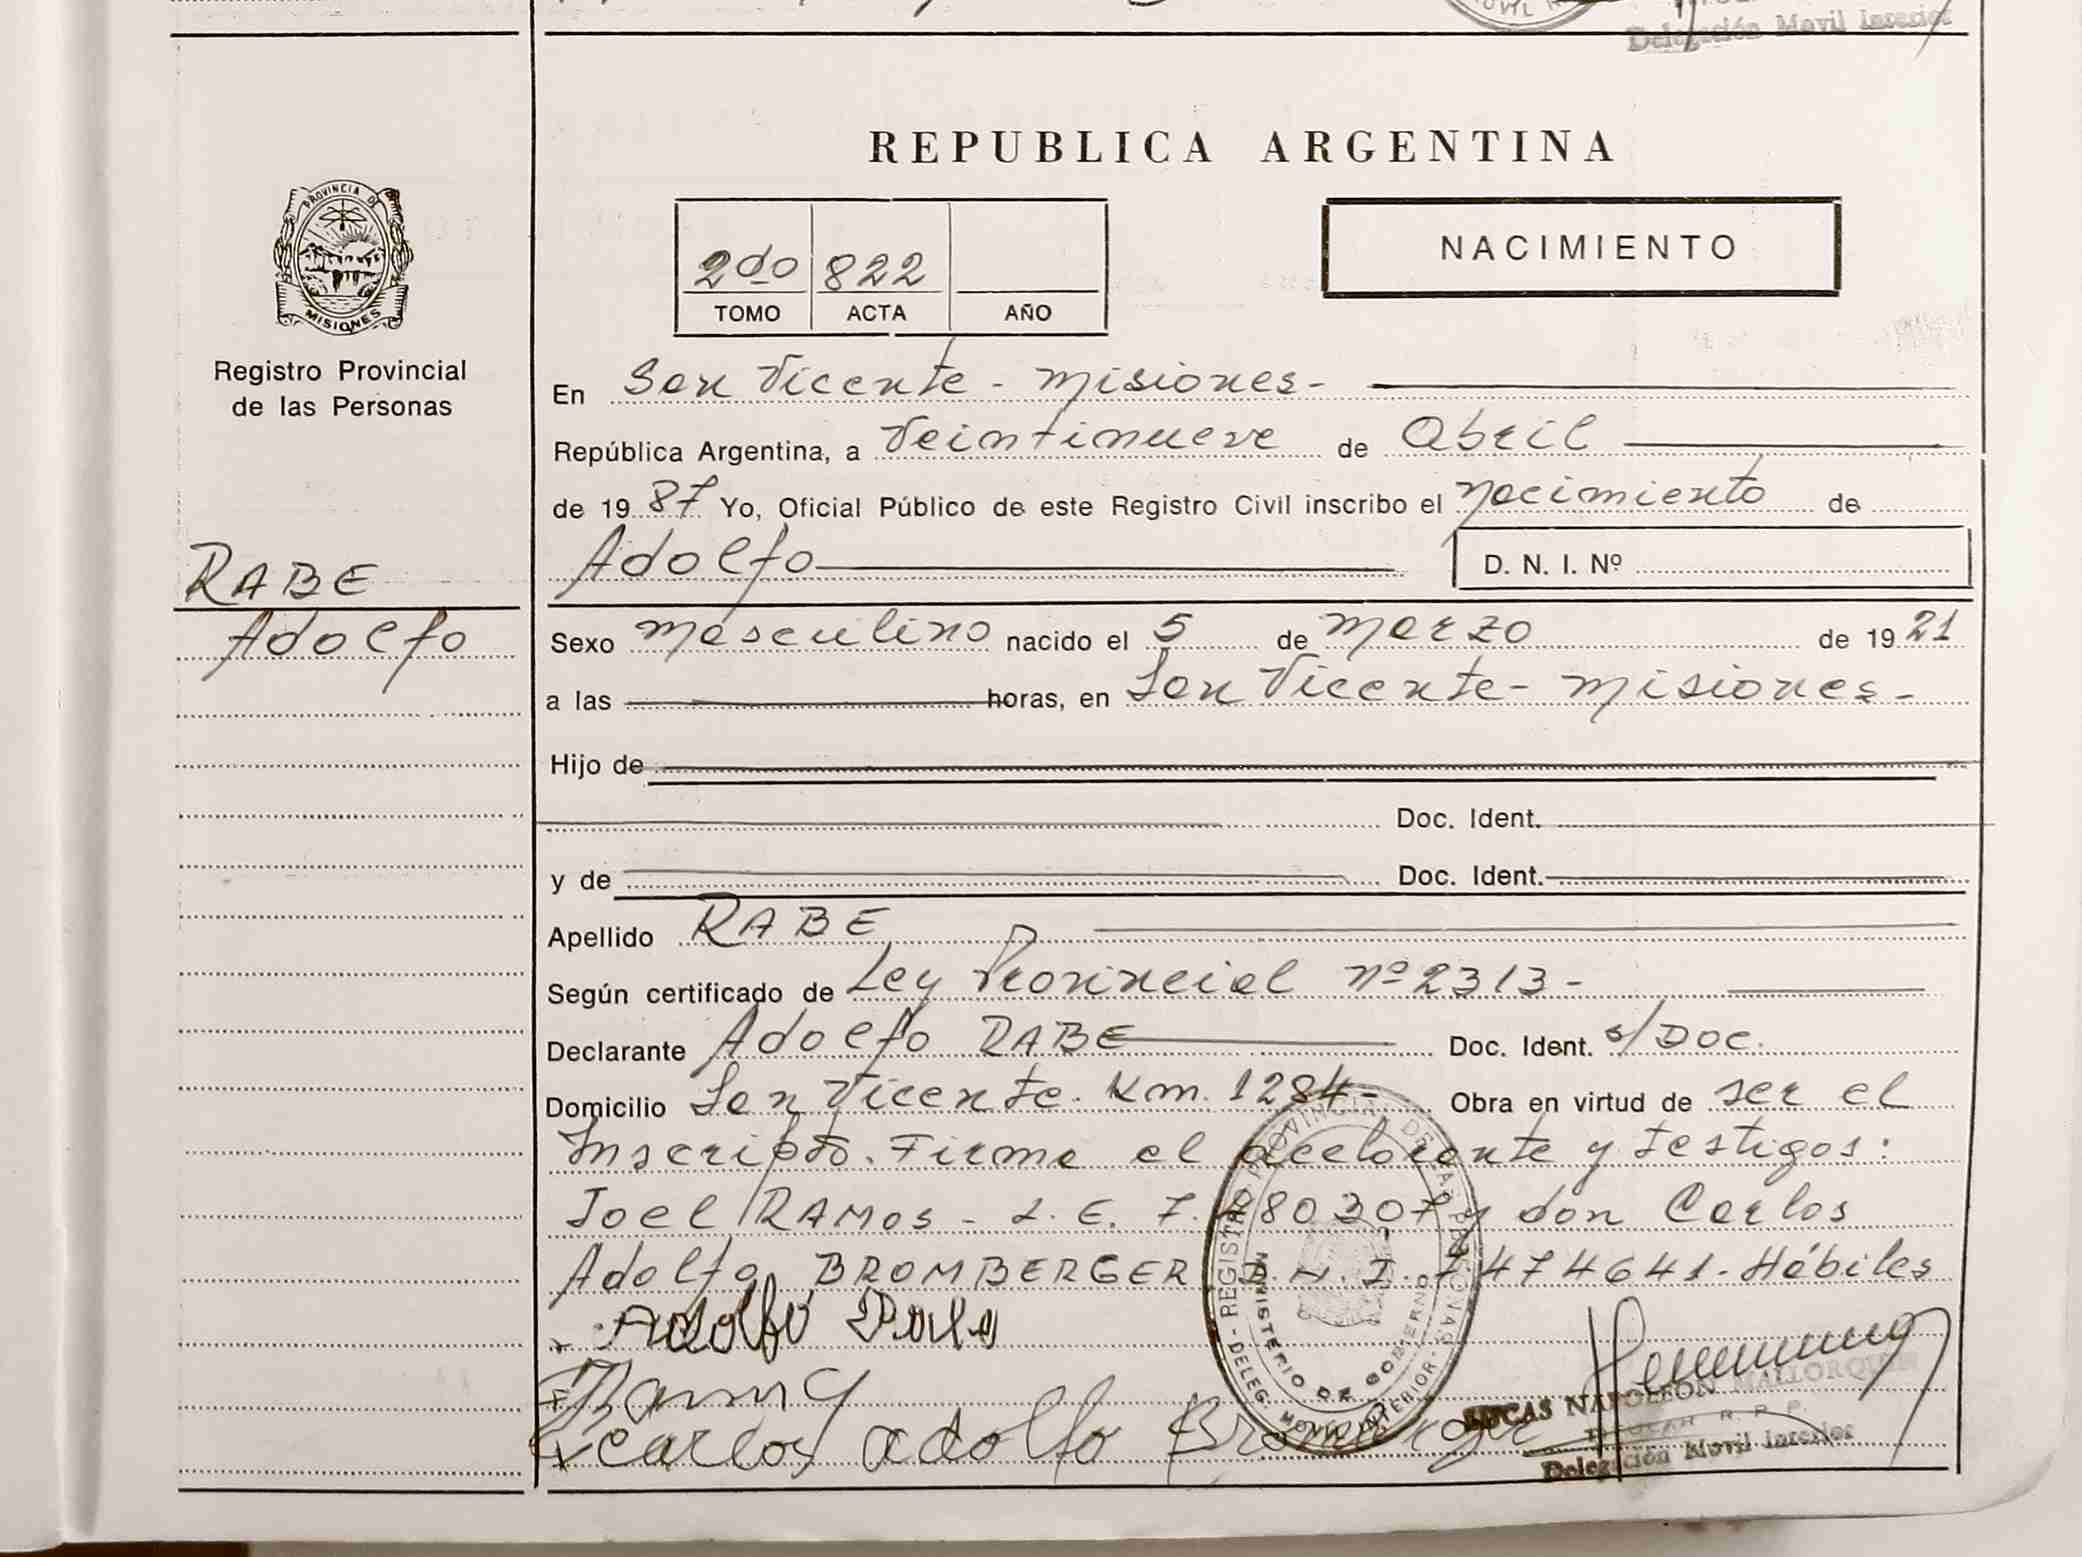 Delegación Movil Interior
REPUBLICA ARGENTINA
PROVINCIA DE
MISIONES
Registro Provincial
de las Personas
2do 822
TOMO ACTA AÑO
NACIMIENTO
En San Vicente - Misiones-
República Argentina, a Veintinueve de Abril
de 1987 Yo, Oficial Público de este Registro Civil inscribo el nacimiento de
Adolfo D. N. I. Nº
RABE
Adolfo
Sexo masculino nacido el 5 de Marzo de 1921
a las horas, en San Vicente - Misiones -
Hijo de
Doc. Ident.
y de Doc. Ident.
Apellido RABE
Según certificado de Ley Provincial nº 2313 -
Declarante Adolfo RABE Doc. Ident. s/Doc.
Domicilio San Vicente. Km. 1284- Obra en virtud de ser el
Inscripto. Firma el declarante y testigos:
Joel RAMOS - L. E. 7. 80307 y don Carlos
Adolfo BROMBERGER D.N.I. 7474641. Hábiles
Adolfo Rabe
Carlos adolfo Bromberger
REGISTRO PROVINCIAL DE LAS PERSONAS
MINISTERIO DE GOBIERNO
DELEG. MOVIL INTERIOR
LUCAS NAPOLEON MALLORQUIN
R. P. P.
Delegación Movil Interior